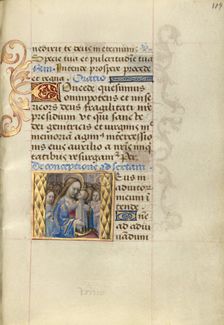 nedixit te deus in eternum.
Specie tua et pulcritudine tua
Intende prospere procede
et regna. Oratio
Concede quesumus
omnipotens et mise
ricors deus fragilitati nre
presidium ut qui sancte
dei genitricis et virginis me
moria agim' intercessio
nis eius auxilio a nris iniq
tatibus resurgam' Per
De conceptione ad sextam
Deus in
adiutoriu
meum in
tende
Dne ad
adiuuandum